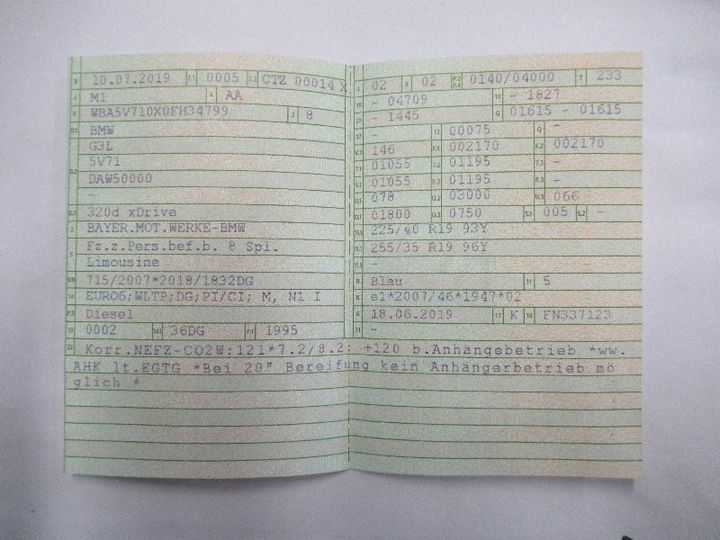 10.07.2019 0005 CTZ D0014 X
M1 AA
WBA5V710X0FH34799 8
BMW
G3L
5V71
DAW50000
-
320d xDrive
BAYER.MOT.WERKE-BMW
Fz.z.Pers.bef.b. 8 Spl.
Limousine
715/2007*2018/1832DG
EURO6;WLTP;DG;PI/CI; M, N1 I
Diesel
0002 36DG 1995
02 02 0140/04000 233
- 04709 - 1827
- 1445 01615 - 01615
- 00075 -
146 002170 002170
01055 01195 -
01055 01195 -
078 03000 066
01800 0750 005 -
225/40 R19 93Y
255/35 R19 96Y
-
Blau 5
e1*2007/46*1947*02
18.06.2019 K FN337123
-
Korr.NEFZ-CO2W:121*7.2/8.2: +120 b.Anhängebetrieb *ww.
AHK lt.EGTG *Bei 20" Bereifung kein Anhängerbetrieb mö
glich *